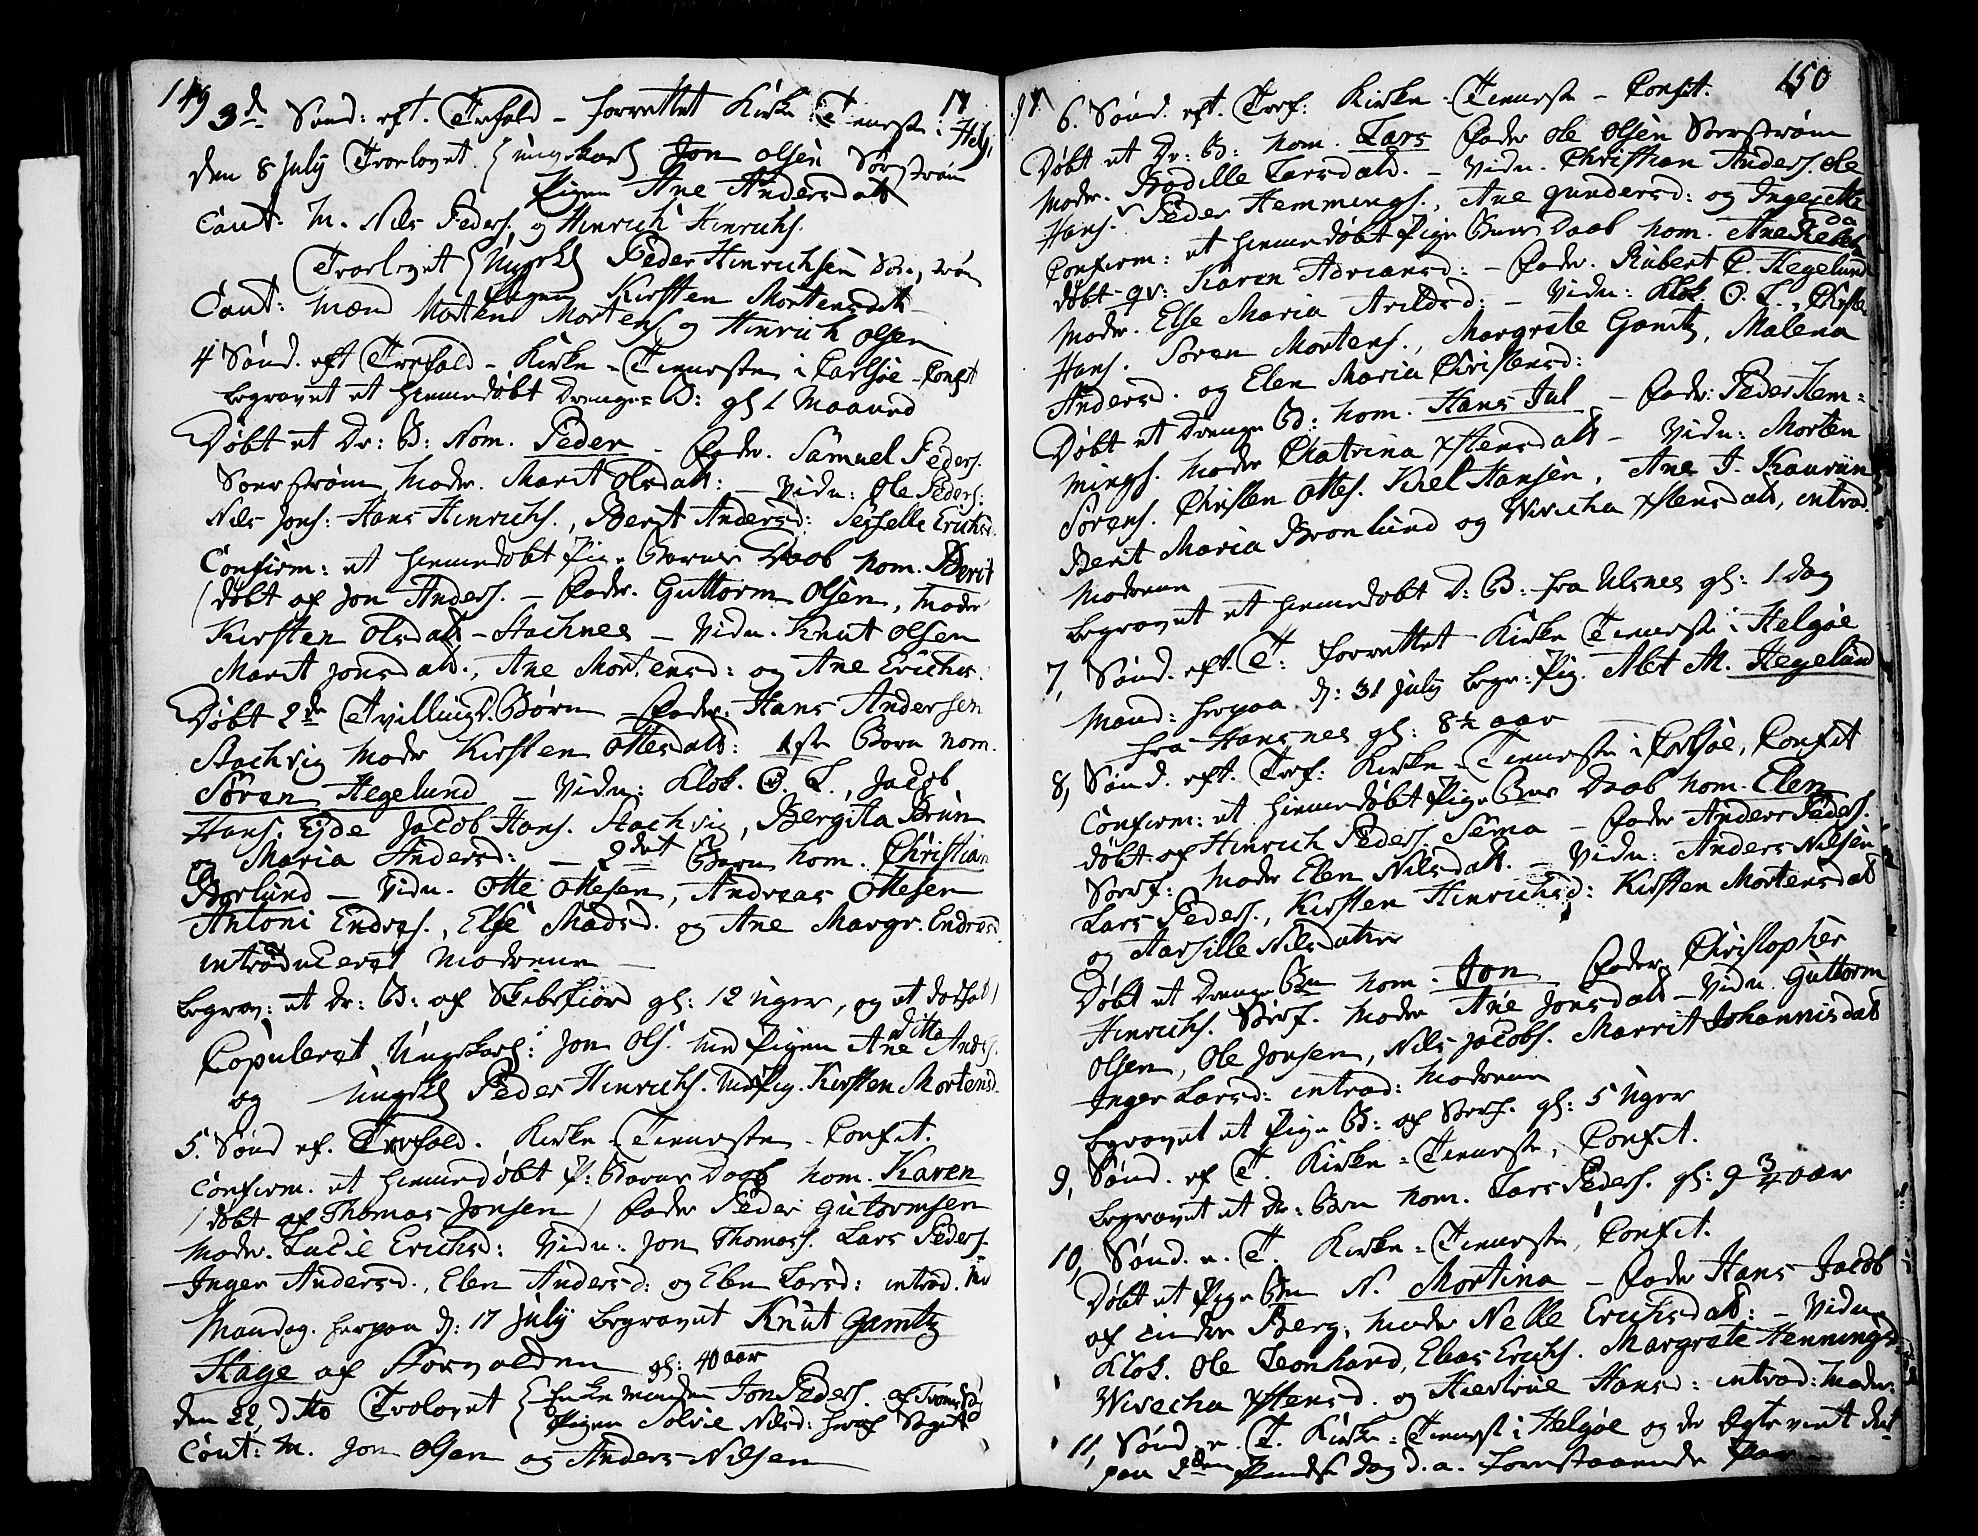 149
17
3de Sønd: eft. Trefold - forrettet Kirke-Tienesten i Helg:
den 8 July Trolovet Ungkarl Jon Olsen Sørstrøm
Pigen Ane Andersdatt
Caut: M. Nils Peders. og Hinrich Hinrichs.
Trolovet Ungkl Peder Hinrichsen Sør.strøm
Pigen Kirsten Mortensdatt
Caut: Mænd Morten Mortens og Hinrich Olsen
4 Sønd. eft Trefold - Kirke-Tienesten i Carlsøe - Confit
begravet et hiemedøbt Drenge B: gl 1 Maaned
Døbt et Dr: B: Nom. Peder - Fader. Samuel Peders.
Sørstrøm, Moder. Marit Olsdatt: - Vidn: Ole Peders:
Nils Jons: Hans Hinrichs., Berit Andersd: Sesselle Erichsd
Confirm: et hiemedøbt Pige Barns Daab nom. Berit
(døbt af Jon Anders. - Fader. Guttorm Olsen, Moder
Kirsten Olsdatt - Stachnes - Vidn. Knut Olsen
Marit Jonsdatt., Ane Mortensd: og Ane Erichs.
Døbt 2de Tvilling D. Børn - Fader. Hans Andersen
Stachvig Moder Kirsten Ottesdatt: 1ste Barn nom.
Søren Hegelund - Vidn: Klok. O. L., Jacob
Hans: Eyde Jacob Hans. Stachvig, Bergita Brun
og Maria Andersd: - 2det Barn nom. Christian
Borlund - Vidn. Otte Ottesen, Andreas Ottesen
Antoni Endres., Else Madsd. og Ane Margr. Endresd
introduceret Moderen -
begrav: et Dr: B: af Skibsfiord gl: 12 Uger, og et dødfød
ditto
Copuleret Ungkarl: Jon Ols. med Pigen Ane Anders.
og Ungkl Peder Hinrichs. med Pig. Kirsten Mortensd.
5. Sønd ef. Trefold. Kirke-Tienesten - Confit.
Confirm. et hiemedøbt P: Barns Daab nom. Karen
(døbt af Thomas Jonsen) Fader Peder Gutormsen
Moder. Lucie Erichsd: Vidn: Jon Thomass. Lars Peders.
Inger Andersd., Elen Andersd: og Elen Larsd: introd. M
Mandag. herpaa d: 17 July begravet Knut Gamtz
Hage af Torvolden gl: 40 aar
den 22, ditto Trolovet Enkemanden Jon Peders. af
Pigen Solvie Nilsd:
Caut: M. Jon Olsen og Anders Nilsen
150
6. Sønd. eft. Tref: Kirke-Tieneste - Confit.
Døbt et Dr: B: nom. Lars Fader Ole Olsen Sørstrøm
Moder. Bodille Larsdatt. - Vidn. Christian Anders. Ole
Hans. Peder Hemmings., Ane Gundersd: og Ingejette
Confirm: et hiemedøbt Pige Barns Daab nom. Ane
døbt qv: Karen Adriansd: - Fader. Rubert P. Hegelund
Moder. Else Maria Arildsd: - Vidn: Klok. O. L., Christen
Hans. Søren Mortens., Margrete Gamtz, Malena
Andersd. og Elen Maria Christensd:
Døbt et Drenge Bd: nom. Hans Jul - Fader: Peder Hem-
mings. Moder Chatrina Xstensdatt - Vidn: Morten
Sørens. Christen Ottes. Niel Hansen, Ane J. Kauriin
Berit Maria Bronlund og Wivicha Xstensdatt, introd.
Moderen
begravet et hiemedøbt D: B: fra Ulsnes gl: 1 dag
7, Sønd. eft. T: forrettet Kirke Tieneste i Helgøe
Mand: herpaa d: 31 July begr: Pig. Alet M. Hegelund
fra Hansnes gl: 8½ aar
8, Sønd. eft. Tref: Kirke-Tieneste i Carlsøe, Confit
Confirm: et hiemedøbt Pige Barns Daab nom. Elen
døbt af Hinrich Peders. Sema - Fader Anders Peders.
Sørf: Moder Elen Nilsdatt. - Vidn: Anders Nilsen
Lars Peders., Kirsten Hinrichsd: Kirsten Mortensdatt
og Aarsille Nilsdatter
Døbt et Drenge Bn nom. Jon Fader Christopher
Hinrichs. Sørf. Moder Ane Jonsdatt - Vidn. Guttorm
Olsen, Ole Jonsen, Nils Jacobs. Marrit Johannisdatt
Inger Larsd: introd: Moderen
begravet et Pige B: af Sørf. gl: 5 Uger
9, Sønd. ef T. Kirke-Tieneste, Confit.
begravet et Dr: Bn nom. Lars Peders. gl: 9 3/4 aar
10, Sønd. e. T. Kirke-Tieneste, Confit.
Døbt et Pige Bn N. Mortina - Fader Hans Jacob
af Berg, Moder Nelle Erichsdatt: - Vidn
Klok. Ole Leonhard, Elias Erichs. Margrete Henningsd.
Wivecha Xstensd. og Kiertrue Hansd: introd: Moder.
11, Sønd e. T. Kirke-Tienest i Helgøe og
paa 2den d. a.